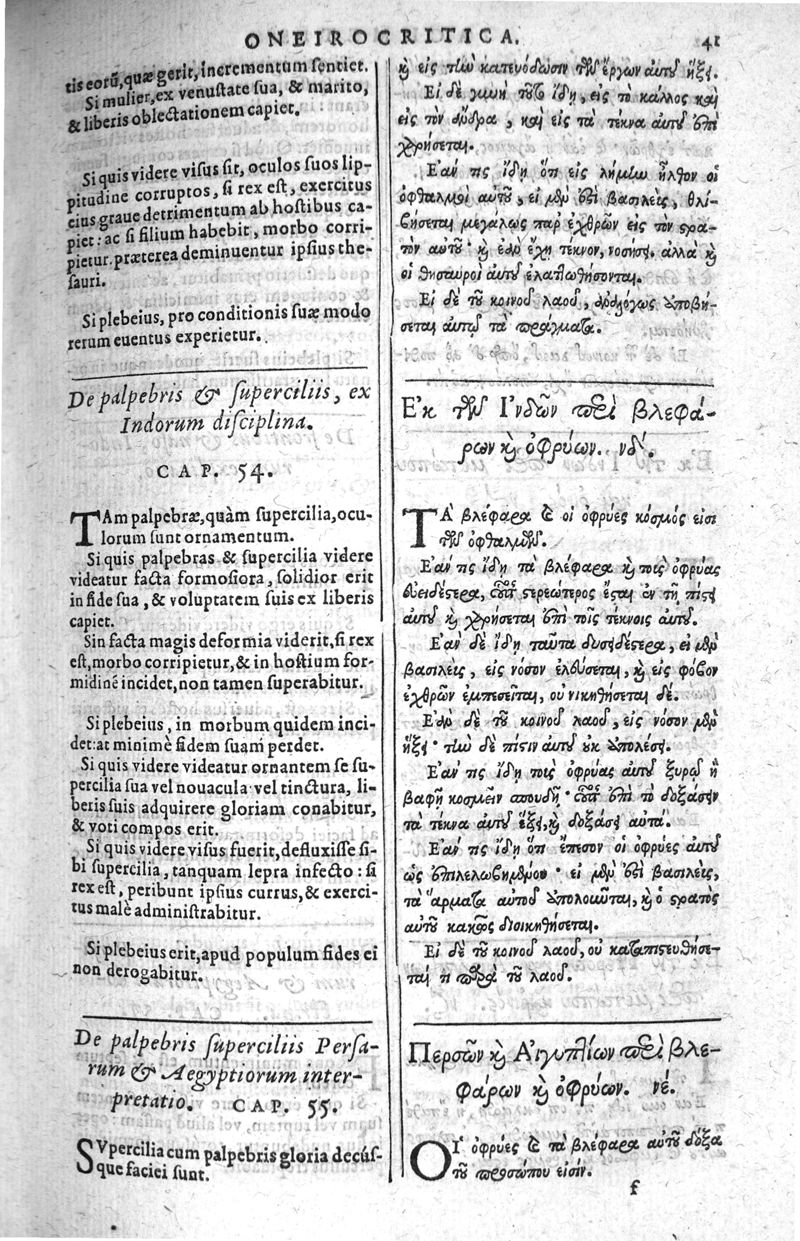 ONEIROCRITICA. 41
tis eorũ, quæ gerit, incrementum sentiet.
Si mulier, ex venustate sua, & marito,
& liberis oblectationem capiet.
Si quis videre visus sit, oculos suos lip-
pitudine corruptos, si rex est, exercitus
eius graue detrimentum ab hostibus ca-
piet: ac si filium habebit, morbo corri-
pietur. præterea deminuentur ipsius the-
sauri.
Si plebeius, pro conditionis suæ modo
rerum euentus experietur.
De palpebris & superciliis, ex
Indorum disciplina.
CAP. 54.
TAm palpebræ, quàm supercilia, ocu-
lorum sunt ornamentum.
Si quis palpebras & supercilia videre
videatur facta formosiora, solidior erit
in fide sua, & voluptatem suis ex liberis
capiet.
Sin facta magis deformia viderit, si rex
est, morbo corripietur, & in hostium for-
midinẽ incidet, non tamen superabitur.
Si plebeius, in morbum quidem inci-
det: at minimè fidem suam perdet.
Si quis videre videatur ornantem se su-
percilia sua vel nouacula vel tinctura, li-
beris suis adquirere gloriam conabitur,
& voti compos erit.
Si quis videre visus fuerit, defluxisse si-
bi supercilia, tanquam lepra infecto: si
rex est, peribunt ipsius currus, & exerci-
tus malè administrabitur.
Si plebeius erit, apud populum fides ei
non derogabitur.
De palpebris superciliis Persa-
rum & Aegyptiorum inter-
pretatio. CAP. 55.
SVpercilia cum palpebris gloria decús-
que faciei sunt.
καὶ εἰς τὴν κατευόδωσιν τῶν ἔργων αὐτοῦ ἥξει.
Εἰ δὲ γυνὴ τοῦτο ἴδῃ, εἰς τὸ κάλλος καὶ
εἰς τὸν ἄνδρα, καὶ εἰς τὰ τέκνα αὐτοῦ ἐπι
χρήσεται.
Ἐάν τις ἴδῃ ὅτι εἰς λήμην ἦλθον οἱ
ὀφθαλμοὶ αὐτοῦ, εἰ μὲν ἐστι βασιλεὺς, θλι-
βήσεται μεγάλως παρ' ἐχθρῶν εἰς τὸν στρα-
τὸν αὐτοῦ· καὶ ἐὰν ἔχῃ τέκνον, νοσήσει. ἀλλὰ καὶ
οἱ θησαυροὶ αὐτοῦ ἐλαττωθήσονται.
Εἰ δὲ τοῦ κοινοῦ λαοῦ, ἀναλόγως ὑποβή-
σεται αὐτῷ τὰ πράγματα.
Ἐκ τῶν Ἰνδῶν περὶ βλεφά-
ρων καὶ ὀφρύων. νδ΄.
ΤΑ βλέφαρα καὶ οἱ ὀφρύες κόσμος εἰσὶ
τῶν ὀφθαλμῶν.
Ἐάν τις ἴδῃ τὰ βλέφαρα καὶ τοὺς ὀφρύας
εὐειδέστερα, οὗτος στερεώτερος ἔσται ἐν τῇ πίστει
αὐτοῦ καὶ χρήσεται ἐπὶ τοῖς τέκνοις αὐτοῦ.
Ἐὰν δὲ ἴδῃ ταῦτα δυσειδέστερα, εἰ μὲν
βασιλεὺς, εἰς νόσον ἐλεύσεται, καὶ εἰς φόβον
ἐχθρῶν ἐμπεσεῖται, οὐ νικηθήσεται δέ.
Ἐὰν δὲ τοῦ κοινοῦ λαοῦ, εἰς νόσον μὲν
ἥξει· τὴν δὲ πίστιν αὐτοῦ οὐκ ἀπολέσει.
Ἐάν τις ἴδῃ τοὺς ὀφρύας αὐτοῦ ξυρῷ ἢ
βαφῇ κοσμεῖν σπουδῇ· οὗτος ἐπὶ τὸ δοξάσειν
τὰ τέκνα αὐτοῦ ἕξει, καὶ δοξάσει αὐτά.
Ἐάν τις ἴδῃ ὅτι ἔπεσον οἱ ὀφρύες αὐτοῦ
ὡς ἐπιλελωβημένου· εἰ μὲν ἐστι βασιλεὺς,
τὰ ἅρματα αὐτοῦ ἀπολοῦνται, καὶ ὁ στρατὸς
αὐτοῦ κακῶς διοικηθήσεται.
Εἰ δὲ τοῦ κοινοῦ λαοῦ, οὐ καταπιστευθήσε-
ταί τι παρὰ τοῦ λαοῦ.
Περσῶν καὶ Αἰγυπτίων περὶ βλε-
φάρων καὶ ὀφρύων. νέ.
ΟἹ ὀφρύες καὶ τὰ βλέφαρα αὐτοῦ δόξα
τοῦ προσώπου εἰσίν.
f